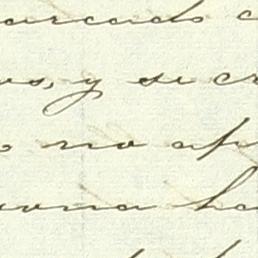 arcado c
os, y se cr
o no ap
rona ha